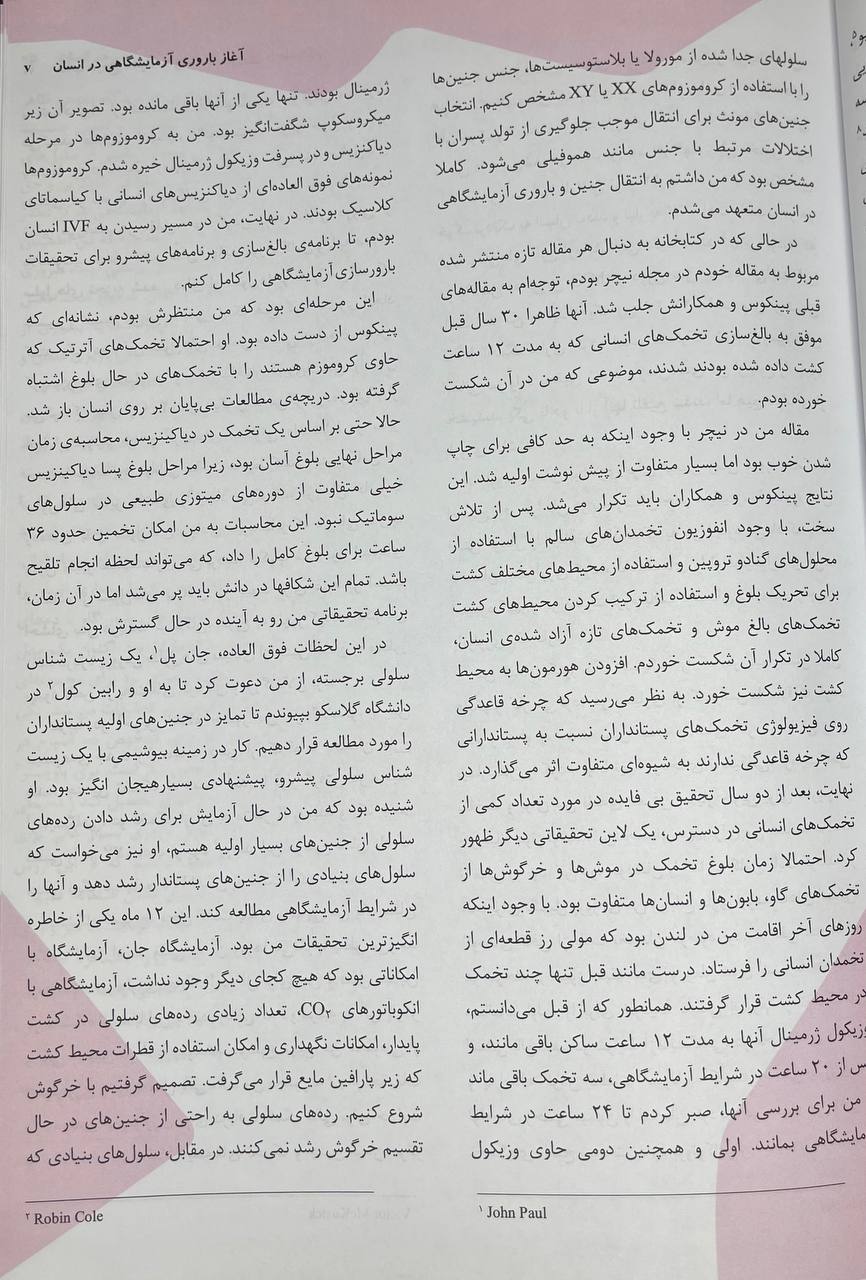 آغاز باروری آزمایشگاهی در انسان ۷
سلولهای جدا شده از مورولا یا بلاستوسیست‌ها، جنس جنین‌ها
را با استفاده از کروموزوم‌های XX یا XY مشخص کنیم. انتخاب
جنین‌های مونث برای انتقال موجب جلوگیری از تولد پسران با
اختلالات مرتبط با جنس مانند هموفیلی می‌شود. کاملا
مشخص بود که من داشتم به انتقال جنین و باروری آزمایشگاهی
در انسان متعهد می‌شدم.
در حالی که در کتابخانه به دنبال هر مقاله تازه منتشر شده
مربوط به مقاله خودم در مجله نیچر بودم، توجه‌ام به مقاله‌های
قبلی پینکوس و همکارانش جلب شد. آنها ظاهرا ۳۰ سال قبل
موفق به بالغ‌سازی تخمک‌های انسانی که به مدت ۱۲ ساعت
کشت داده شده بودند شدند، موضوعی که من در آن شکست
خورده بودم.
مقاله من در نیچر با وجود اینکه به حد کافی برای چاپ
شدن خوب بود اما بسیار متفاوت از پیش نوشت اولیه شد. این
نتایج پینکوس و همکاران باید تکرار می‌شد. پس از تلاش
سخت، با وجود انفوزیون تخمدان‌های سالم با استفاده از
محلول‌های گنادو تروپین و استفاده از محیط‌های مختلف کشت
برای تحریک بلوغ و استفاده از ترکیب کردن محیط‌های کشت
تخمک‌های بالغ موش و تخمک‌های تازه آزاد شده‌ی انسان،
کاملا در تکرار آن شکست خوردم. افزودن هورمون‌ها به محیط
کشت نیز شکست خورد. به نظر می‌رسید که چرخه قاعدگی
روی فیزیولوژی تخمک‌های پستانداران نسبت به پستاندارانی
که چرخه قاعدگی ندارند به شیوه‌ای متفاوت اثر می‌گذارد. در
نهایت، بعد از دو سال تحقیق بی فایده در مورد تعداد کمی از
تخمک‌های انسانی در دسترس، یک لاین تحقیقاتی دیگر ظهور
کرد. احتمالا زمان بلوغ تخمک در موش‌ها و خرگوش‌ها از
تخمک‌های گاو، بابون‌ها و انسان‌ها متفاوت بود. با وجود اینکه
روزهای آخر اقامت من در لندن بود که مولی رز قطعه‌ای از
تخمدان انسانی را فرستاد. درست مانند قبل تنها چند تخمک
در محیط کشت قرار گرفتند. همانطور که از قبل می‌دانستم،
وزیکول ژرمینال آنها به مدت ۱۲ ساعت ساکن باقی مانند، و
س از ۲۰ ساعت در شرایط آزمایشگاهی، سه تخمک باقی ماند
من برای بررسی آنها، صبر کردم تا ۲۴ ساعت در شرایط
مایشگاهی بمانند. اولی و همچنین دومی حاوی وزیکول
۱ John Paul
ژرمینال بودند. تنها یکی از آنها باقی مانده بود. تصویر آن زیر
میکروسکوپ شگفت‌انگیز بود. من به کروموزوم‌ها در مرحله
دیاکنزیس و در پسرفت وزیکول ژرمینال خیره شدم. کروموزوم‌ها
نمونه‌های فوق العاده‌ای از دیاکنزیس‌های انسانی با کیاسماتای
کلاسیک بودند. در نهایت، من در مسیر رسیدن به IVF انسان
بودم، تا برنامه‌ی بالغ‌سازی و برنامه‌های پیشرو برای تحقیقات
بارورسازی آزمایشگاهی را کامل کنم.
این مرحله‌ای بود که من منتظرش بودم، نشانه‌ای که
پینکوس از دست داده بود. او احتمالا تخمک‌های آترتیک که
حاوی کروموزم هستند را با تخمک‌های در حال بلوغ اشتباه
گرفته بود. دریچه‌ی مطالعات بی‌پایان بر روی انسان باز شد.
حالا حتی بر اساس یک تخمک در دیاکنزیس، محاسبه‌ی زمان
مراحل نهایی بلوغ آسان بود، زیرا مراحل بلوغ پسا دیاکنزیس
خیلی متفاوت از دوره‌های میتوزی طبیعی در سلول‌های
سوماتیک نبود. این محاسبات به من امکان تخمین حدود ۳۶
ساعت برای بلوغ کامل را داد، که می‌تواند لحظه انجام تلقیح
باشد. تمام این شکافها در دانش باید پر می‌شد اما در آن زمان،
برنامه تحقیقاتی من رو به آینده در حال گسترش بود.
در این لحظات فوق العاده، جان پل۱، یک زیست شناس
سلولی برجسته، از من دعوت کرد تا به او و رابین کول۲ در
دانشگاه گلاسکو بپیوندم تا تمایز در جنین‌های اولیه پستانداران
را مورد مطالعه قرار دهیم. کار در زمینه بیوشیمی با یک زیست
شناس سلولی پیشرو، پیشنهادی بسیارهیجان انگیز بود. او
شنیده بود که من در حال آزمایش برای رشد دادن رده‌های
سلولی از جنین‌های بسیار اولیه هستم، او نیز می‌خواست که
سلول‌های بنیادی را از جنین‌های پستاندار رشد دهد و آنها را
در شرایط آزمایشگاهی مطالعه کند. این ۱۲ ماه یکی از خاطره
انگیزترین تحقیقات من بود. آزمایشگاه جان، آزمایشگاه با
امکاناتی بود که هیچ کجای دیگر وجود نداشت، آزمایشگاهی با
انکوباتورهای CO۲، تعداد زیادی رده‌های سلولی در کشت
پایدار، امکانات نگهداری و امکان استفاده از قطرات محیط کشت
که زیر پارافین مایع قرار می‌گرفت. تصمیم گرفتیم با خرگوش
شروع کنیم. رده‌های سلولی به راحتی از جنین‌های در حال
تقسیم خرگوش رشد نمی‌کنند. در مقابل، سلول‌های بنیادی که
۲ Robin Cole